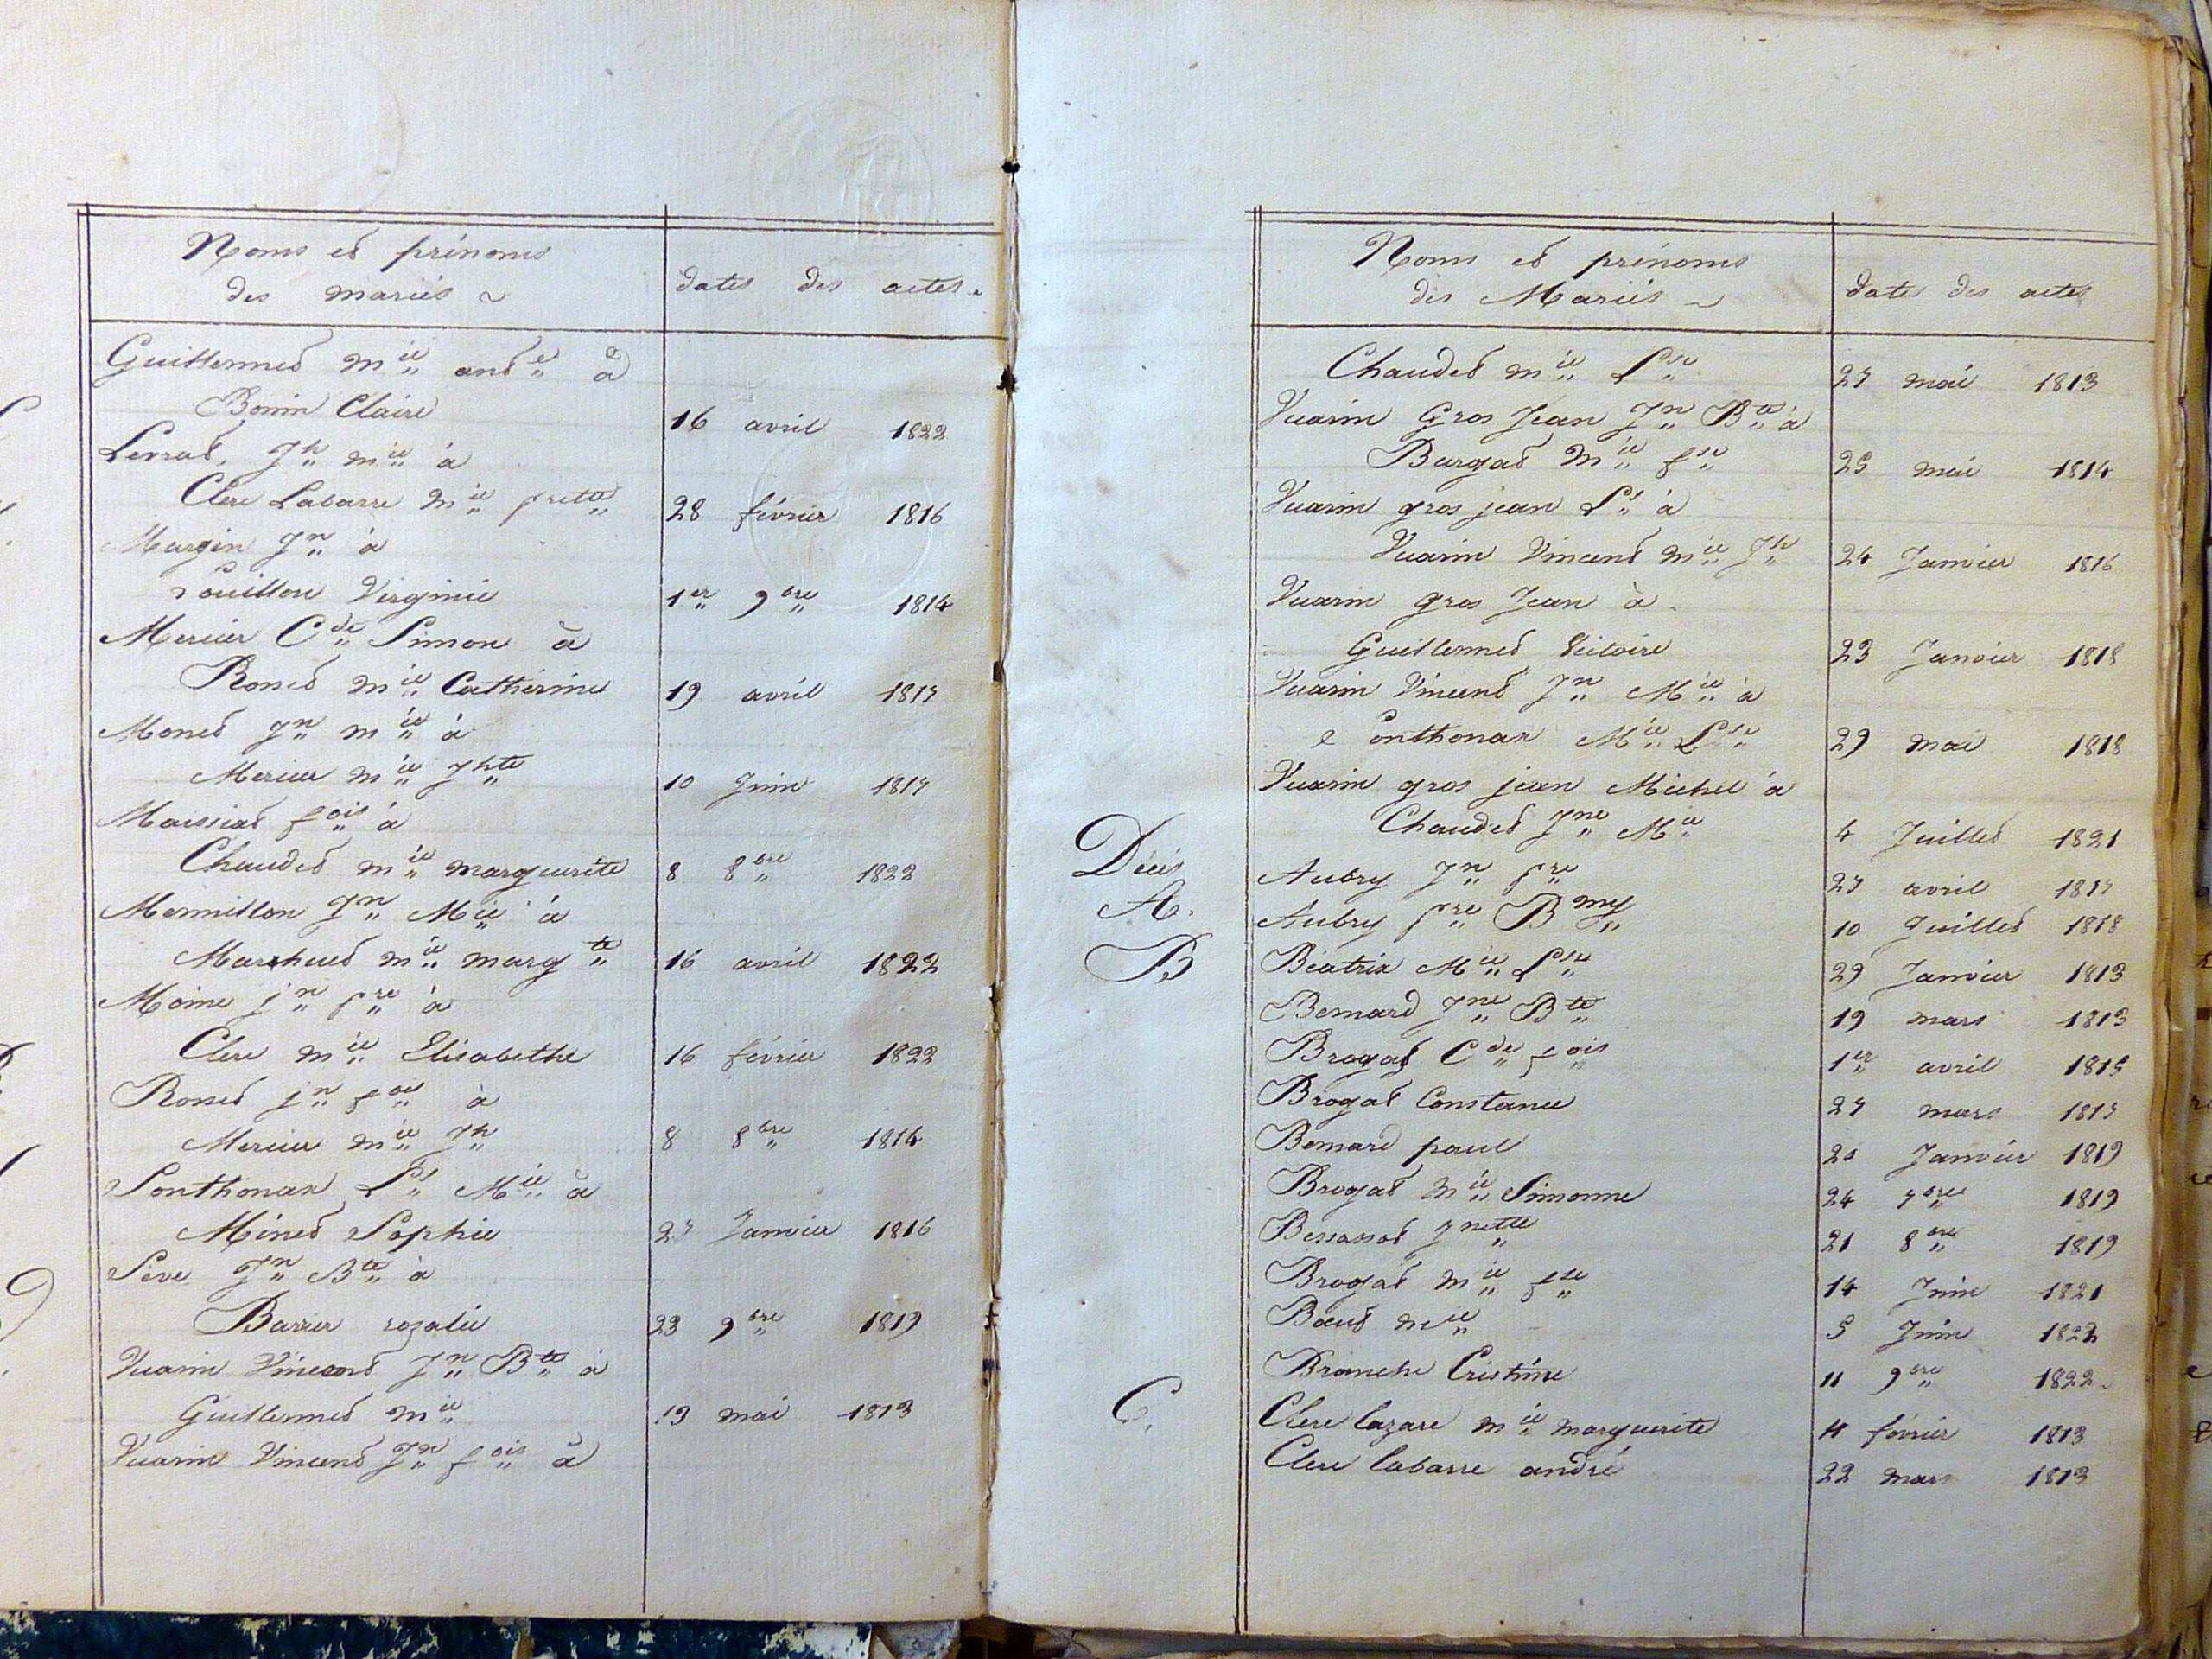 Noms et prénoms
des mariés
dates des actes
Guillermet mie andé à
Bonin Claire 16 avril 1822
Lerrat Jh mie à
Clerc Labarre mie prette 28 février 1816
Margin Jn à
Pouillon Virginie 1er 9bre 1814
Mercier Cde Simon à
Ronet mie Catherine 19 avril 1817
Monet Jn mie à
Mercier mie Jhte 10 Juin 1817
Maissiat fois à
Chaudet mie marguerite 8 8bre 1822
Mermillon Jn Mie à
Marthuet mie margte 16 avril 1822
Moine jn pre à
Clerc mie Elisabethe 16 février 1822
Ronet jn à
Mercier mie Jh 8 8bre 1814
Sonthonax Ls Mie à
Minet Sophie 27 Janvier 1816
Seve Jn Bte à
Barier rozalie 23 9bre 1819
Vuarin Vincent Jn Bte à
Guillermet mie 19 mai 1813
Vuarin Vincent Jn fois à
Noms et prénoms
des Mariés
dates des actes
Chaudet mie Lse 27 mai 1813
Vuarin Gros Jean Jn Bte à
Burgat Mie fse 25 mai 1814
Vuarin gros jean Ls à
Vuarin Vincent mie Jh 24 Janvier 1816
Vuarin gros Jean à
Guillermet Victoire 23 Janvier 1818
Vuarin Vincent Jn Mie à
Ponthonax Mie Lse 29 mai 1818
Vuarin gros jean Michel à
Chaudet Jne Mie 4 Juillet 1821
Décès
A. Aubry Jn pre 27 avril 1817
Aubry pre Bmy 10 Juillet 1818
B Béatrix Mie Lse 29 Janvier 1813
Bernard Jne Bte 19 mars 1813
Brogat Cde fois 1er avril 1815
Brogat Constance 27 mars 1817
Bernard paul Janvier 1819
Brogat mie Simonne 24 7bre 1819
Bessassat Jnette 21 8bre 1819
Brogat mie fse 14 Juin 1821
Bœuf mie 5 Juin 1822
Branche Cristine 11 9bre 1822
C. Clerc lazare mie marguerite 11 février 1813
Clerc labarre andré 22 mars 1813